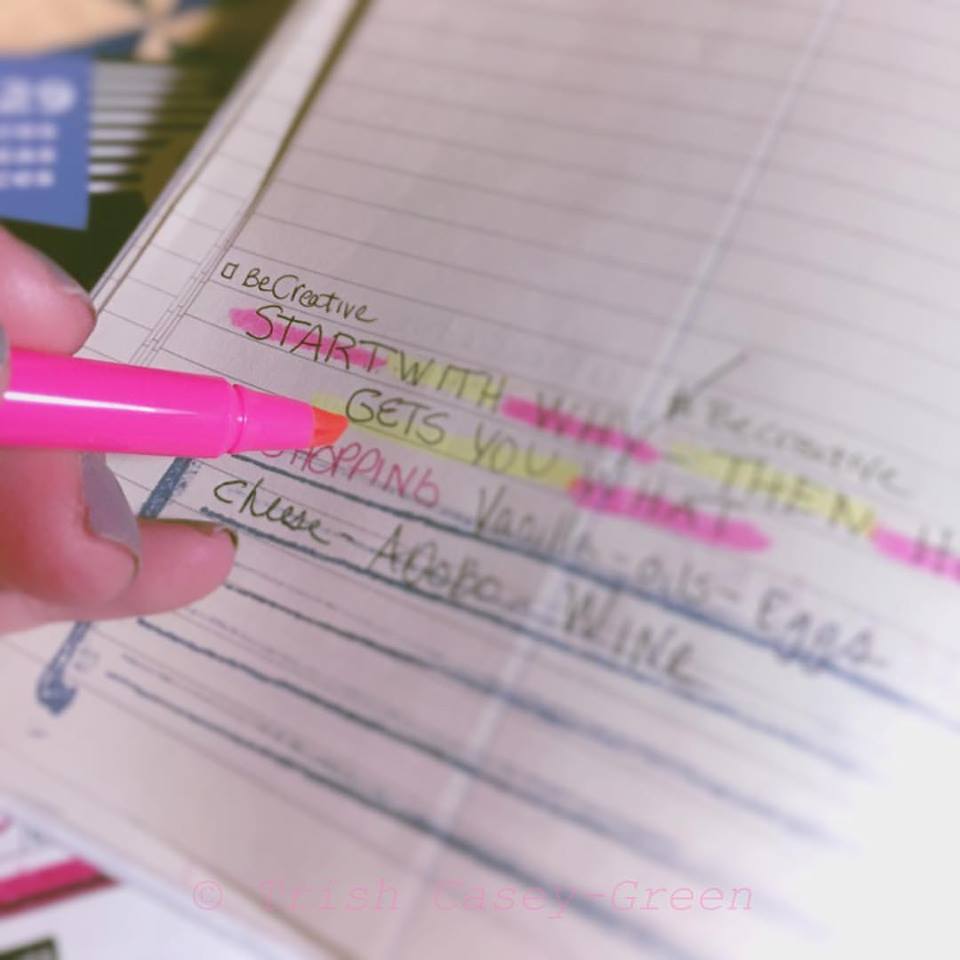 29
BeCreative
START WITH WHY - THEN
GETS YOU WHAT
SHOPPING Vanilla - oils - Eggs
Cheese - Adobo - WINE
© Trish Casey-Green